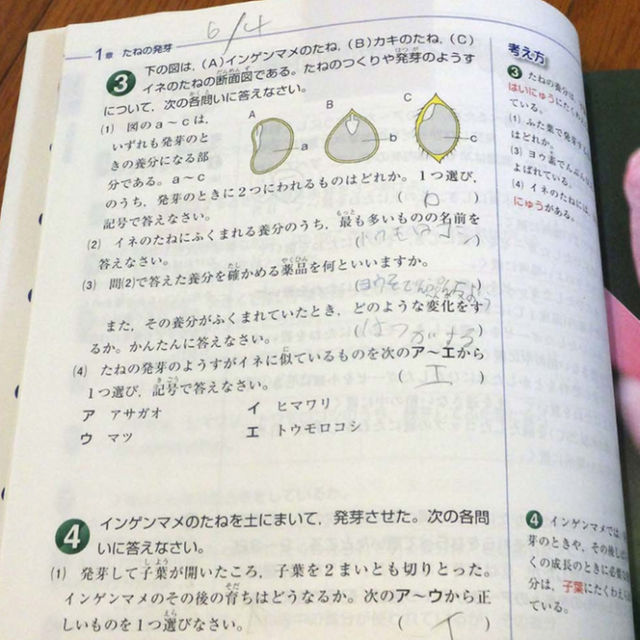 6/4
1章 たねの発芽
3 下の図は,(A)インゲンマメのたね,(B)カキのたね,(C)
イネのたねの断面図である。たねのつくりや発芽のようす
について,次の各問いに答えなさい。
(1) 図のa〜cは,
いずれも発芽のと
きの養分になる部
分である。a〜c
のうち,発芽のときに2つにわれるものはどれか。1つ選び,
記号で答えなさい。
A
B
C
a
b
c
(2) イネのたねにふくまれる養分のうち,最も多いものの名前を
答えなさい。
(3) 問(2)で答えた養分を確かめる薬品を何といいますか。
また,その養分がふくまれていたとき,どのような変化をす
るか。かんたんに答えなさい。
(4) たねの発芽のようすがイネに似ているものを次のア〜エから
1つ選び,記号で答えなさい。
(エ)
ア アサガオ イ ヒマワリ
ウ マツ エ トウモロコシ
4 インゲンマメのたねを土にまいて,発芽させた。次の各問
いに答えなさい。
(1) 発芽して子葉が開いたころ,子葉を2まいとも切りとった。
インゲンマメのその後の育ちはどうなるか。次のア〜ウから正
しいものを1つ選びなさい。
考え方
3 たねの養分は,
はいにゅうにたくわ
ている。
(1) ふた葉で発芽す
はどれか。
(3) ヨウ素でんぷん
よばれている。
(4) イネのたねには,
にゅうがある。
4 インゲンマメでは
芽のときや,その後し
くの成長のときに必要
分は,子葉にたくわえ
ている。